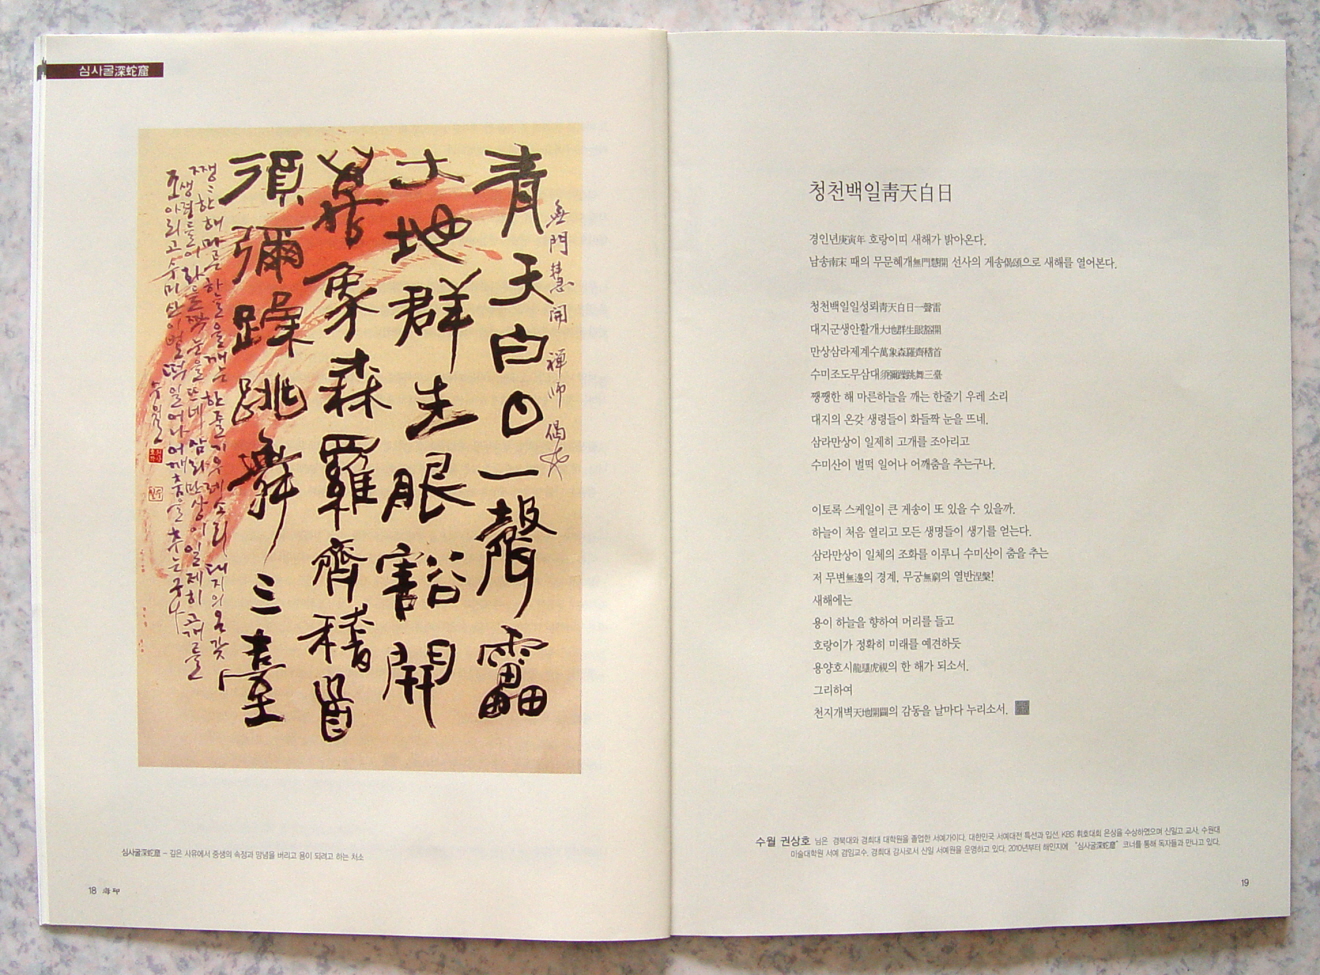 심사굴深蛇窟
無門慧開 禪師 偈頌
靑天白日一聲雷
大地群生眼豁開
萬象森羅齊稽首
須彌跳舞三臺
쨍쨍한 해 마른 하늘을 깨는 한 줄기 우레 소리 대지의 온갖
생령들이 화들짝 눈을 뜨네 삼라만상이 일제히 고개를
조아리고 수미산이 벌떡 일어나 어깨춤을 추는구나
심사굴深蛇窟 – 깊은 사유에서 중생의 속절과 망념을 버리고 용이 되려고 하는 처소
18 海印
청천백일靑天白日
경인년庚寅年 호랑이띠 새해가 밝아온다.
남송南宋 때의 무문혜개無門慧開 선사의 게송偈頌으로 새해를 열어본다.
청천백일일성뢰靑天白日一聲雷
대지군생안활개大地群生眼豁開
만상삼라제계수萬象森羅齊稽首
수미조도무삼대須彌跳舞三臺
쨍쨍한 해 마른하늘을 깨는 한줄기 우레 소리
대지의 온갖 생령들이 화들짝 눈을 뜨네.
삼라만상이 일제히 고개를 조아리고
수미산이 벌떡 일어나 어깨춤을 추는구나.
이토록 스케일이 큰 게송이 또 있을 수 있을까.
하늘이 처음 열리고 모든 생명들이 생기를 얻는다.
삼라만상이 일체의 조화를 이루니 수미산이 춤을 추는
저 무변無邊의 경계, 무궁無窮의 열반涅槃!
새해에는
용이 하늘을 향하여 머리를 들고
호랑이가 정확히 미래를 예견하듯
용양호시龍驤虎視의 한 해가 되소서.
그리하여
천지개벽天地開闢의 감동을 날마다 누리소서.
수월 권상호 님은 경북대와 경희대 대학원을 졸업한 서예가이다. 대한민국 서예대전 특선과 입선, KBS 휘호대회 은상을 수상하였으며 신일고 교사, 수원대
미술대학원 서예 겸임교수, 경희대 강사로서 신일 서예원을 운영하고 있다. 2010년부터 해인지에 "심사굴深蛇窟" 코너를 통해 독자들과 만나고 있다.
19